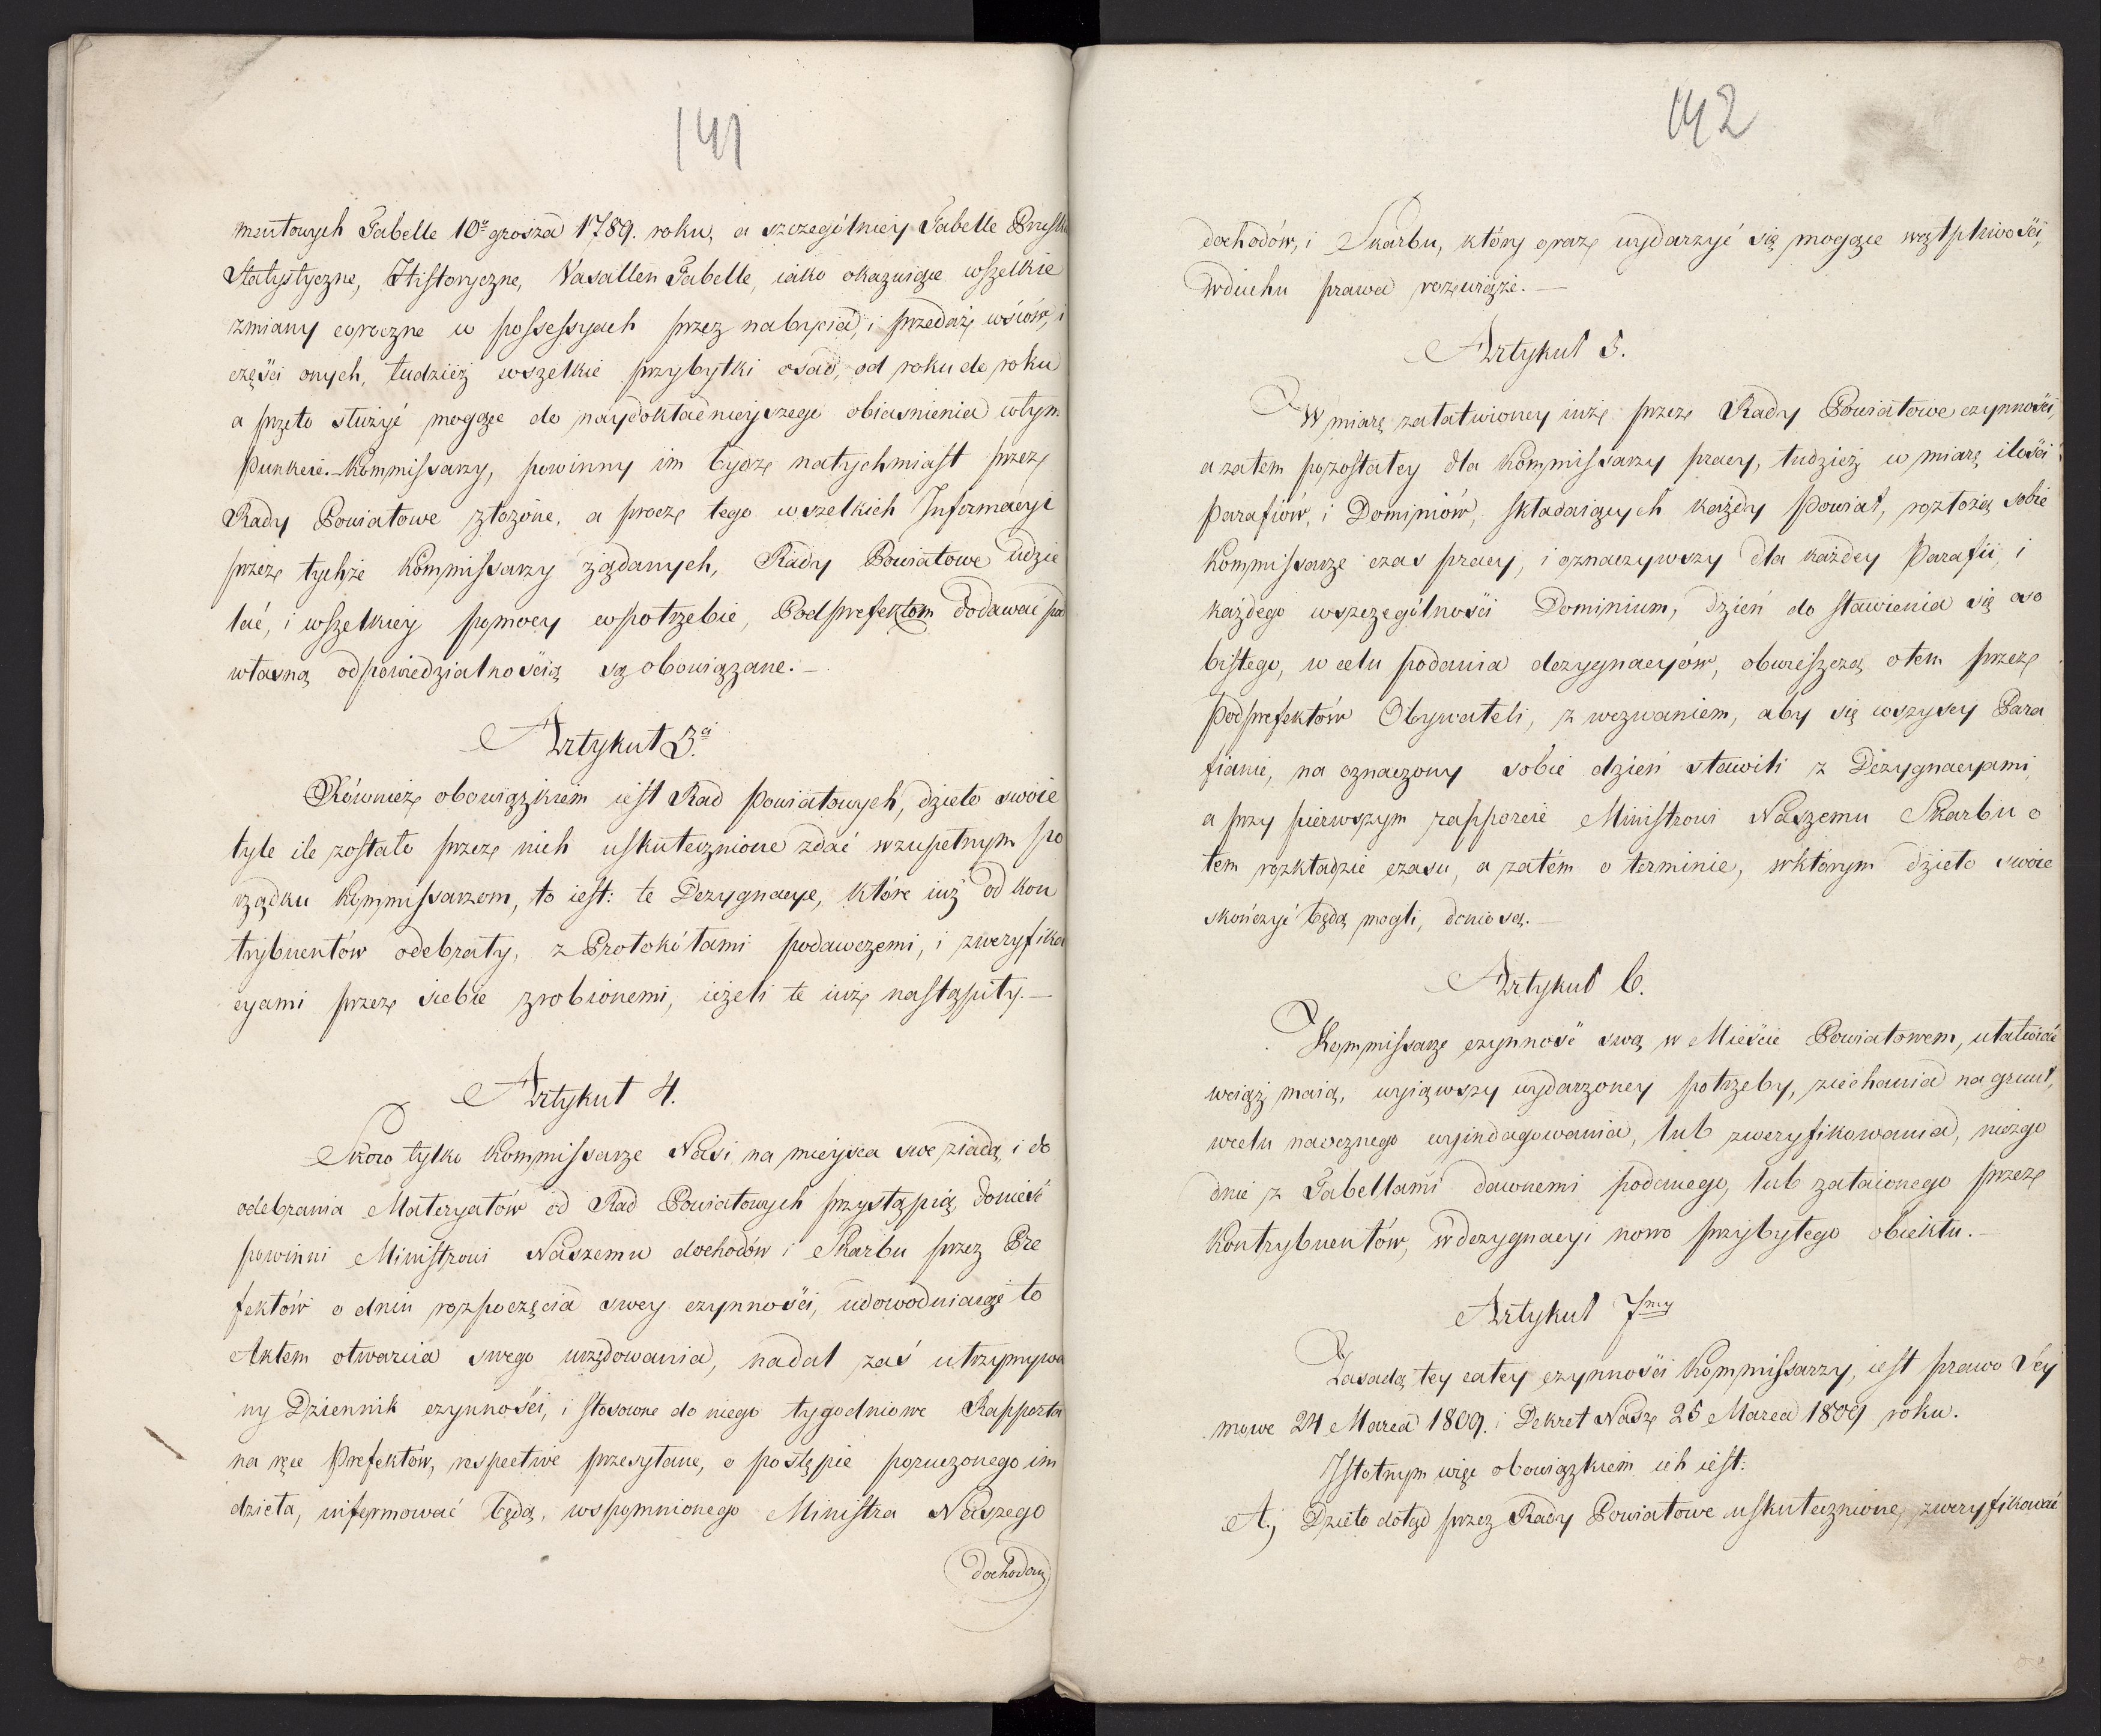 141
mentowych Tabelle 10º grosza 1789. roku, a szczególniey Tabelle Pruskie
Statystyczne, Historyczne, Vasallen Tabelle, iako okazuiące wszelkie
zmiany coroczne w possessyach przez nabycia, i przedaż wsiów, i
części onych, tudzież wszelkie przybytki osad, od roku do roku
a przeto służyć mogące do naydokładnieyszego obiasnienia wtym
Punkcie. Kommissarzy, powinny im bydz natychmiast przez
Rady Powiatowe złożone, a procz tego wszelkich Informacyi
przez tychże Kommissarzy żądanych, Rady Powiatowe udzie
lać, i wszelkiey pomocy wpotrzebie, Podprefektom dodawać pod
własną odpowiedzialnością są obowiązane.—
Artykuł 3.ci
Również obowiązkiem iest Rad Powiatowych, dzieło swoie
tyle ile zostało przez nich uskutecznione zdać wzupełnym po
rządku Kommissarzom, to iest: te Dezygnacye, które iuż od kon
trybuentów odebrały, z Protokółami podawczemi, i zweryfika
cyami przez siebie zrobionemi, ieżeli te iuż nastąpiły.—
Artykuł 4.
Skoro tylko Kommissarze Nasi na mieysca swe ziadą, i do
odebrania Materyałów od Rad Powiatowych przystąpią, donieść
powinni Ministrowi Naszemu dochodów i Skarbu przez Pre
fektów o dniu rozpoczęcia swey czynności, udowodniaiąc to
Aktem otwarcia swego urzędowania, nadal zaś utrzymywa
ny Dziennik czynności, i stosowne do niego tygodniowe Rapporta
na ręce Prefektów, respective przesyłane, o postępie poruczonego im
dzieła, informować będą, wspomnionego Ministra Naszego
dochodów
142
dochodów, i Skarbu, który oraz wydarzyć się mogące wątpliwości,
wduchu prawa rozwiąże.—
Artykuł 5.
W miarę załatwioney iuż przez Rady Powiatowe czynności,
a zatem pozostałey dla Kommissarzy pracy, tudzież w miarę ilości
Parafiów, i Dominiów, składaiących każdy Powiat, rozłożą sobie
Kommissarze czas pracy, i oznaczywszy dla każdey Parafii, i
każdego wszczególności Dominium, dzień do stawienia się oso
bistego, w celu podania dezygnacyów, obwieszczą otem przez
Podprefektów Obywateli, z wezwaniem, aby się wszyscy Para
fianie, na oznaczony sobie dzień stawili z Dezygnacyami,
a przy pierwszym rapporcie Ministrowi Naszemu Skarbu o
tem rozkładzie czasu, a zatém o terminie, wktórym dzieło swoie
skończyć będą mogli, doniosą.—
Artykuł 6.
Kommissarze czynność swą w Mieście Powiatowem, ułatwiać
wciąż maią, wyiąwszy wydarzoney potrzeby, ziechania na grunt,
wcelu naocznego wyindagowania, lub zweryfikowania, niezgo
dnie z Tabellami dawnemi podanego, lub zataionego przez
Kontrybuentów, w dezygnacyi nowo przybyłego obiektu.—
Artykuł 7my
Zasadą tey całey czynności Kommissarzy, iest prawo Sey
mowe 24 Marca 1809. i Dekret Nasz 25 Marca 1809 roku.
Istotnym więc obowiązkiem ich iest:
A.) Dzieło dotąd przez Rady Powiatowe uskutecznione, zweryfikować